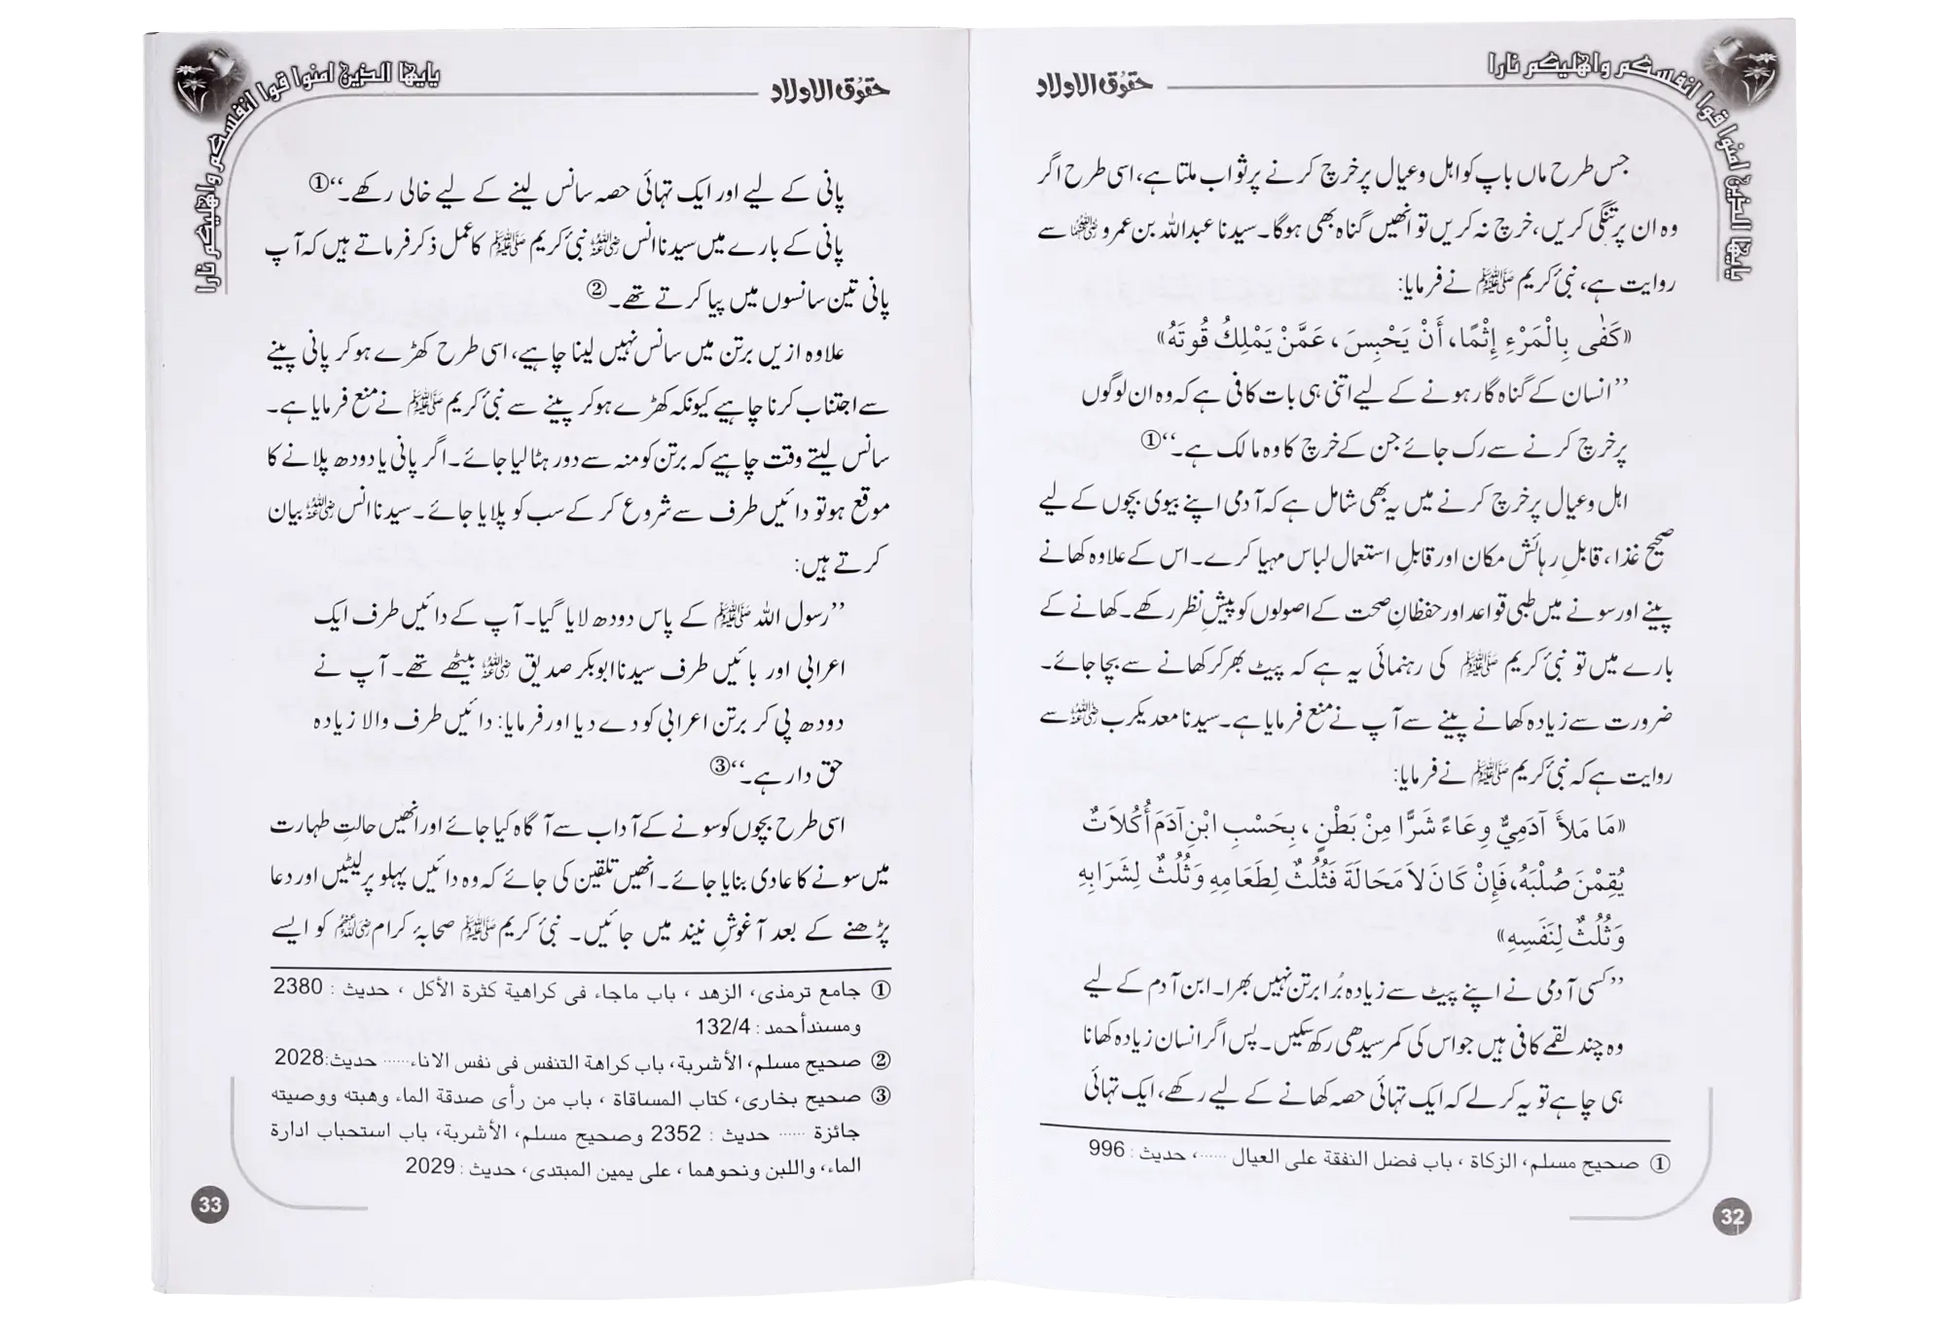 حقوق الاولاد
يايها الذين امنوا قوا انفسكم واهليكم نارا
جس طرح ماں باپ کو اہل و عیال پر خرچ کرنے پر ثواب ملتا ہے، اسی طرح اگر
وہ ان پر تنگی کریں، خرچ نہ کریں تو انھیں گناہ بھی ہوگا۔ سیدنا عبداللہ بن عمرو رضی اللہ عنہما سے
روایت ہے، نبیٔ کریم ﷺ نے فرمایا:
«كَفٰى بِالْمَرْءِ إِثْمًا، أَنْ يَحْبِسَ، عَمَّنْ يَمْلِكُ قُوتَهُ»
’’انسان کے گناہ گار ہونے کے لیے اتنی ہی بات کافی ہے کہ وہ ان لوگوں
پر خرچ کرنے سے رک جائے جن کے خرچ کا وہ مالک ہے۔‘‘①
اہل و عیال پر خرچ کرنے میں یہ بھی شامل ہے کہ آدمی اپنے بیوی بچوں کے لیے
صحیح غذا، قابلِ رہائش مکان اور قابلِ استعمال لباس مہیا کرے۔ اس کے علاوہ کھانے
پینے اور سونے میں طبی قواعد اور حفظانِ صحت کے اصولوں کو پیشِ نظر رکھے۔ کھانے کے
بارے میں تو نبیٔ کریم ﷺ کی رہنمائی یہ ہے کہ پیٹ بھر کر کھانے سے بچا جائے۔
ضرورت سے زیادہ کھانے پینے سے آپ نے منع فرمایا ہے۔ سیدنا معدیکرب رضی اللہ عنہ سے
روایت ہے کہ نبیٔ کریم ﷺ نے فرمایا:
«مَا مَلأَ آدَمِيٌّ وِعَاءً شَرًّا مِنْ بَطْنٍ، بِحَسْبِ ابْنِ آدَمَ أُكُلاَتٌ
يُقِمْنَ صُلْبَهُ، فَإِنْ كَانَ لاَ مَحَالَةَ فَثُلُثٌ لِطَعَامِهِ وَثُلُثٌ لِشَرَابِهِ
وَثُلُثٌ لِنَفَسِهِ»
’’کسی آدمی نے اپنے پیٹ سے زیادہ بُرا برتن نہیں بھرا۔ ابن آدم کے لیے
وہ چند لقمے کافی ہیں جو اس کی کمر سیدھی رکھ سکیں۔ پس اگر انسان زیادہ کھانا
ہی چاہے تو یہ کرلے کہ ایک تہائی حصہ کھانے کے لیے رکھے، ایک تہائی
① صحیح مسلم، الزکاة، باب فضل النفقة علی العیال ......، حدیث : 996
32
يايها الذين امنوا قوا انفسكم واهليكم نارا
حقوق الاولاد
پانی کے لیے اور ایک تہائی حصہ سانس لینے کے لیے خالی رکھے۔‘‘①
پانی کے بارے میں سیدنا انس رضی اللہ عنہ نبیٔ کریم ﷺ کا عمل ذکر فرماتے ہیں کہ آپ
پانی تین سانسوں میں پیا کرتے تھے۔②
علاوہ ازیں برتن میں سانس نہیں لینا چاہیے، اسی طرح کھڑے ہو کر پانی پینے
سے اجتناب کرنا چاہیے کیونکہ کھڑے ہو کر پینے سے نبیٔ کریم ﷺ نے منع فرمایا ہے۔
سانس لیتے وقت چاہیے کہ برتن کو منہ سے دور ہٹا لیا جائے۔ اگر پانی یا دودھ پلانے کا
موقع ہو تو دائیں طرف سے شروع کر کے سب کو پلایا جائے۔ سیدنا انس رضی اللہ عنہ بیان
کرتے ہیں:
’’رسول اللہ ﷺ کے پاس دودھ لایا گیا۔ آپ کے دائیں طرف ایک
اعرابی اور بائیں طرف سیدنا ابوبکر صدیق رضی اللہ عنہ بیٹھے تھے۔ آپ نے
دودھ پی کر برتن اعرابی کو دے دیا اور فرمایا: دائیں طرف والا زیادہ
حق دار ہے۔‘‘③
اسی طرح بچوں کو سونے کے آداب سے آگاہ کیا جائے اور انھیں حالتِ طہارت
میں سونے کا عادی بنایا جائے۔ انھیں تلقین کی جائے کہ وہ دائیں پہلو پر لیٹیں اور دعا
پڑھنے کے بعد آغوشِ نیند میں جائیں۔ نبیٔ کریم ﷺ صحابۂ کرام رضی اللہ عنہم کو ایسے
① جامع ترمذی، الزهد، باب ماجاء فی کراهية کثرة الأکل، حدیث : 2380
ومسندأحمد : 132/4
② صحیح مسلم، الأشربة، باب کراهة التنفس فی نفس الاناء...... حدیث:2028
③ صحیح بخاری، کتاب المساقاة، باب من رأی صدقة الماء وهبته ووصیته
جائزة ...... حدیث : 2352 وصحیح مسلم، الأشربة، باب استحباب ادارة
الماء، واللبن ونحوهما، علی یمین المبتدی، حدیث : 2029
33